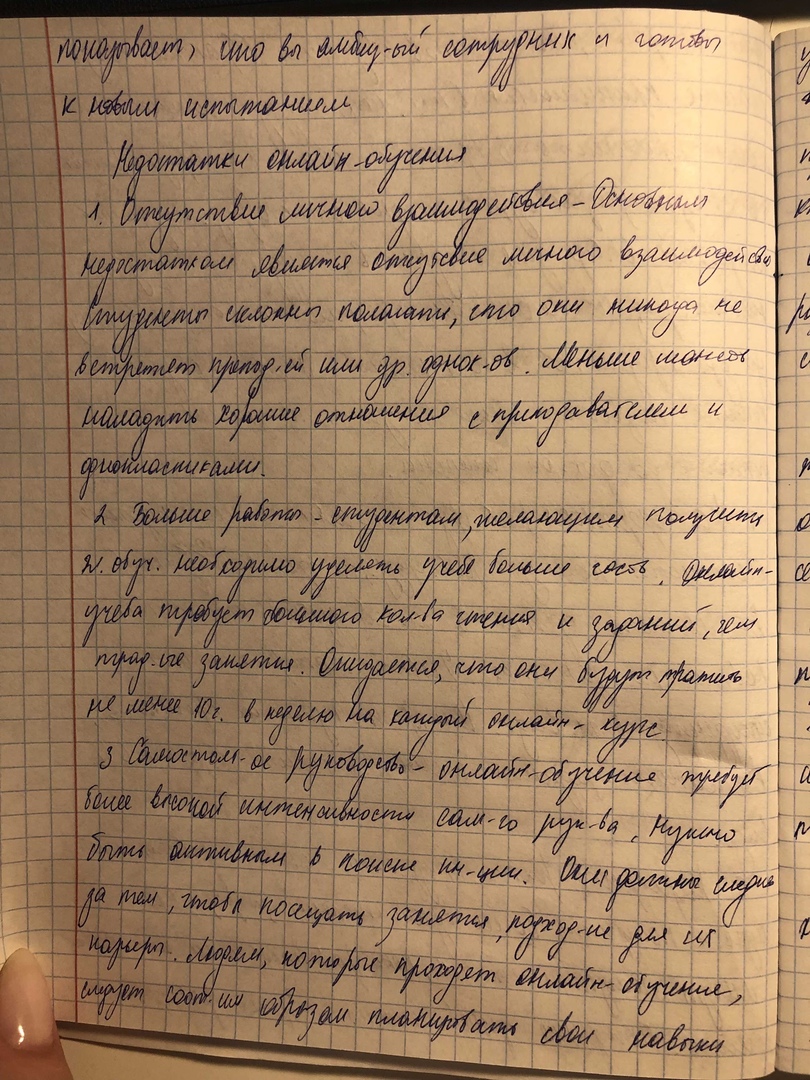 показывает, что вы амбиц-ый сотрудник и готовы
к новым испытанием
Недостатки онлайн-обучения
1. Отсутствие личного взаимодействия - Основным
недостатком является отсутсвие личного взаимодейсвия
Студенты склонны полагать, что они никогда не
встретят препод-ей или др. однок-ов. Меньше шансов
наладить хорошие отношения с преподавателем и
одноклассниками.
2 Больше работы - студентам, желающим получить
обуч. необходимо уделять учебе больше часть. Онлайн-
учеба требует большого кол-ва чтения и заданий, чем
трад-ые занятия. Ожидается, что они будут тратить
не менее 10г. в неделю на каждый онлайн-курс
3 Самостоят-ое руководство - онлайн-обучение требует
более высокой интенсивности сам-го рук-ва, Нужно
быть активным в поиске ин-ции. Они должны следить
за тем, чтобы посещать занятия, подход-ие для их
карьеры. Людям, которые проходят онлайн-обучение,
следует соот-им образом планировать свои навыки